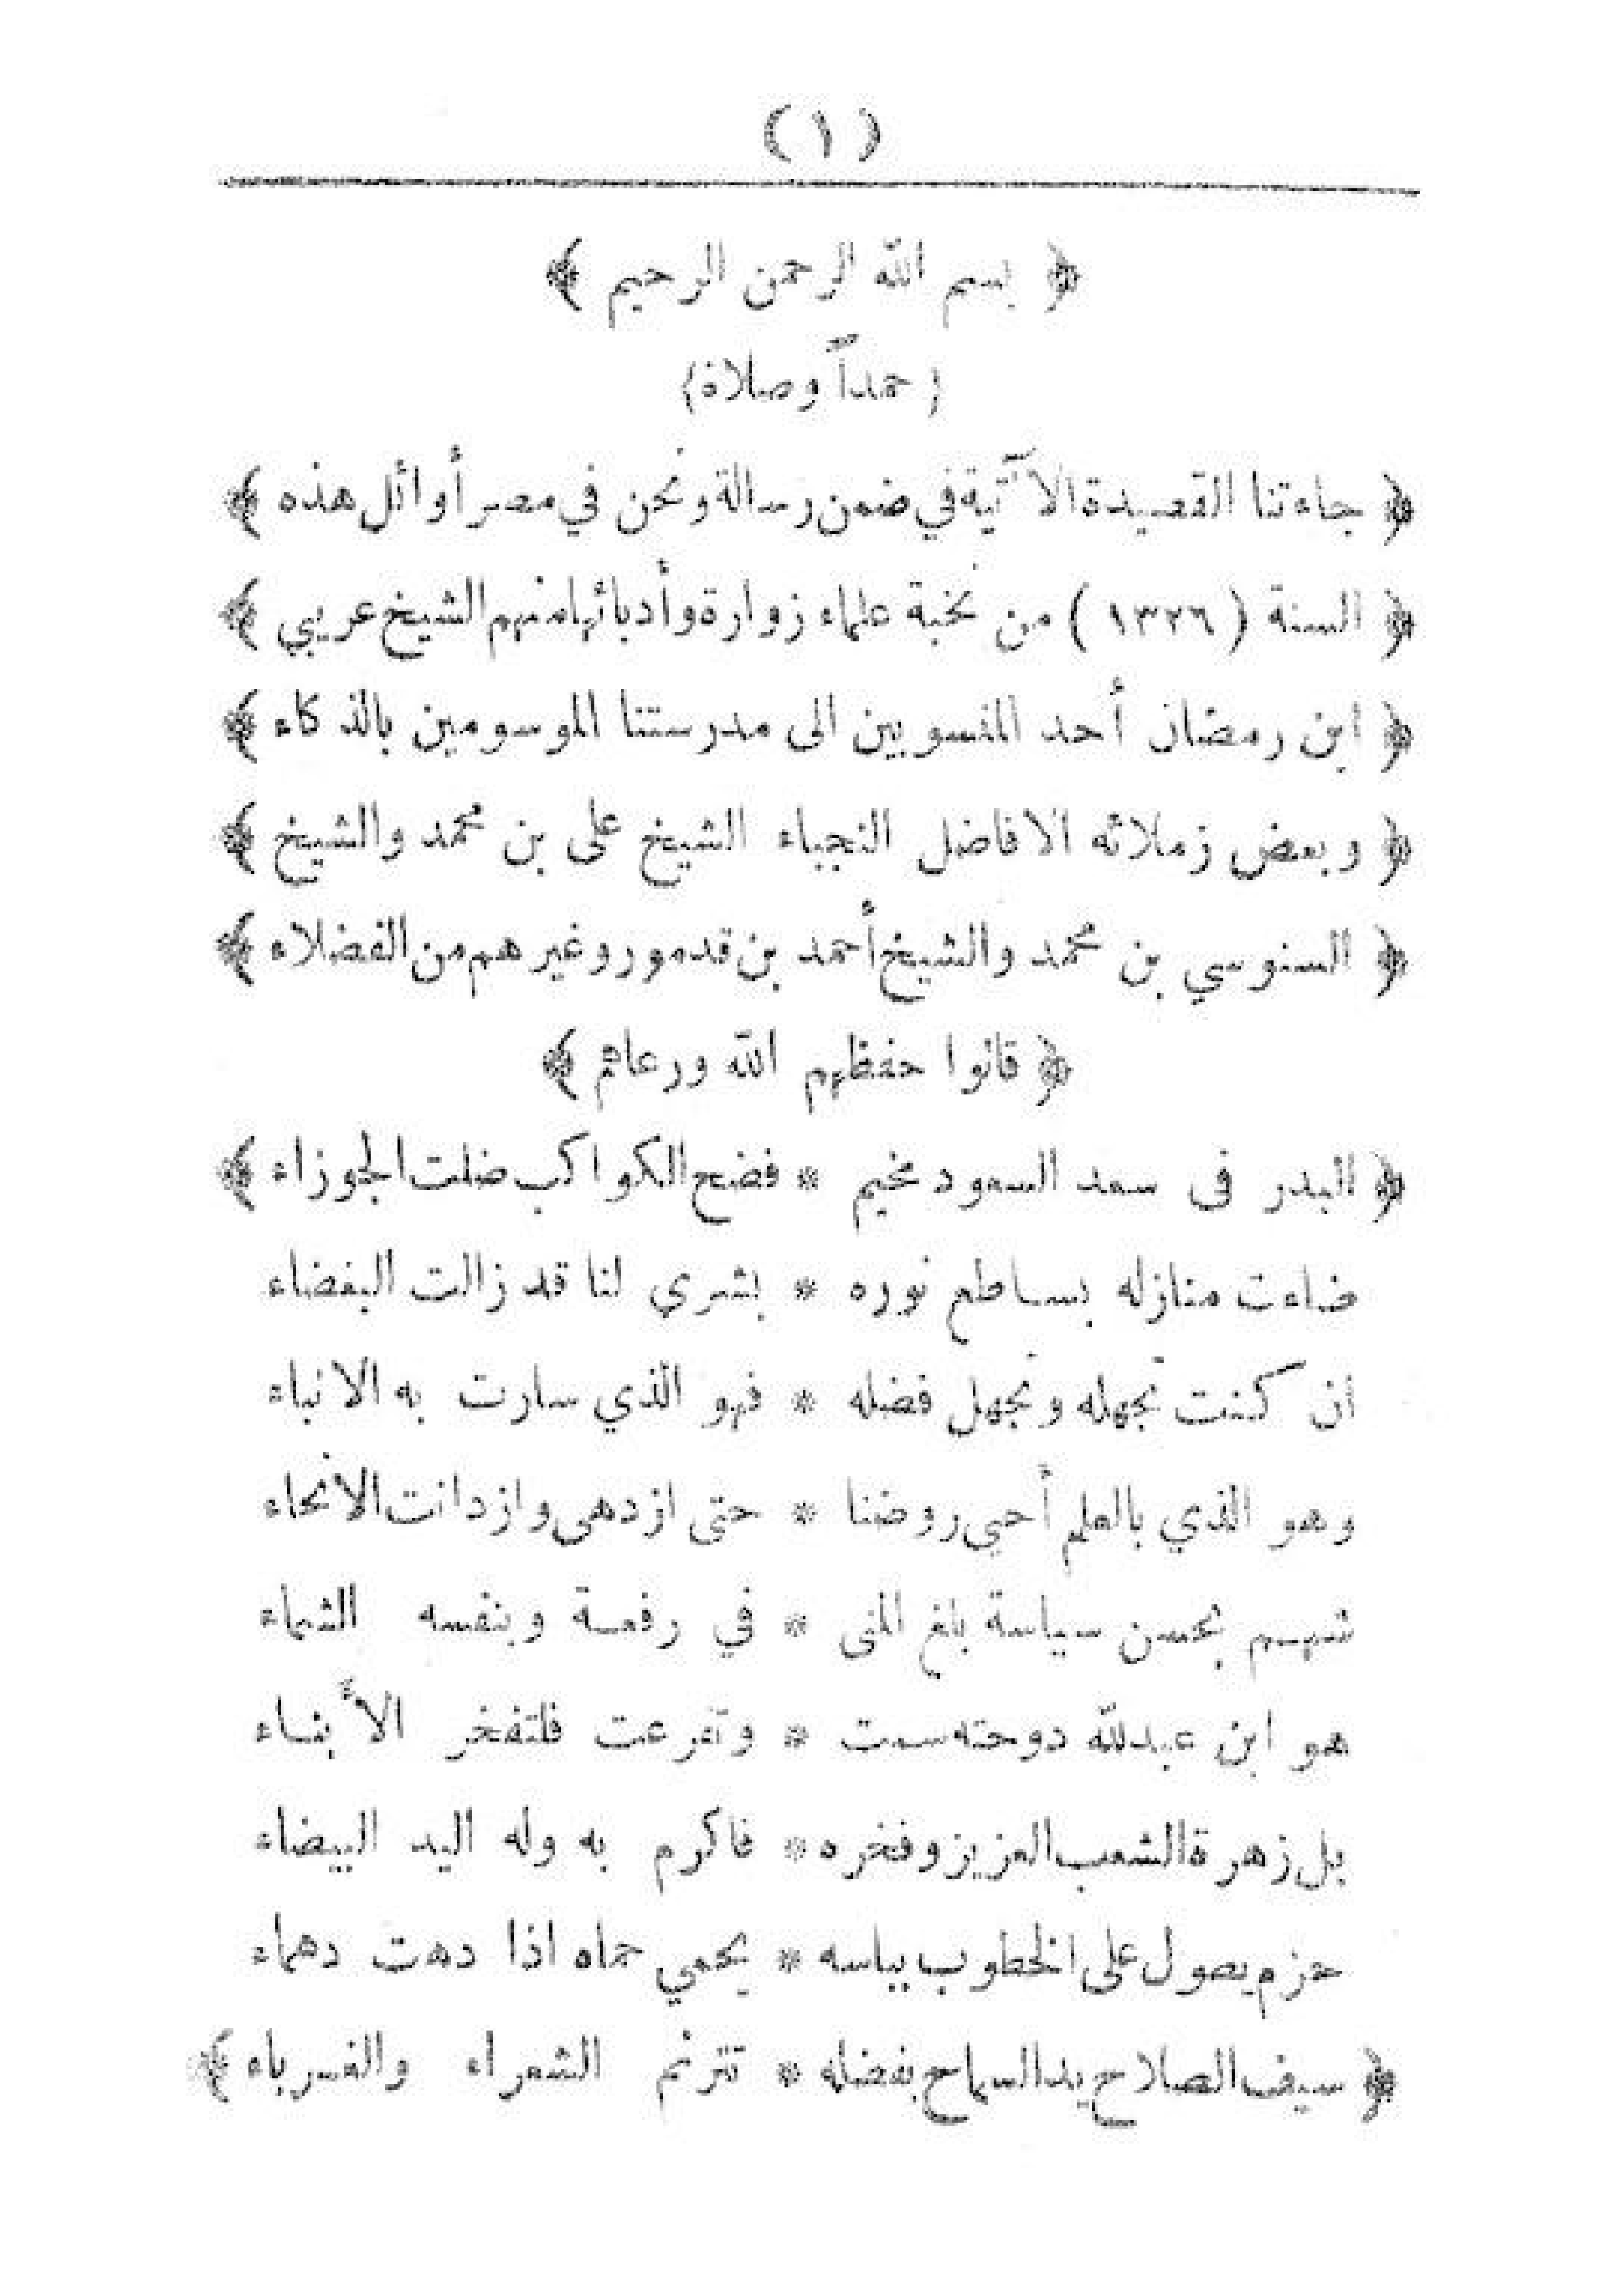 (١)
﴿ بسم الله الرحمن الرحيم ﴾
(حمداً وصلاة)
﴿ جاءتنا القصيدة الآتية في ضمن رسالة ونحن في مصر أوائل هذه ﴾
﴿ السنة (١٣٢٦) من نخبة علماء زوارة وأدبائها منهم الشيخ عريبي ﴾
﴿ ابن رمضان أحد المنسوبين الى مدرستنا الموسومين بالذكاء ﴾
﴿ وبعض زملائه الافاضل النجباء الشيخ على بن محمد والشيخ ﴾
﴿ السنوسي بن محمد والشيخ أحمد بن قدمور وغيرهم من الفضلاء ﴾
﴿ قالوا حفظهم الله ورعاهم ﴾
﴿ البدر فى سعد السعود مخيم * فضح الكواكب ضلت الجوزاء ﴾
ضاءت منازله بساطع نوره * بشري لنا قد زالت البغضاء
ان كنت تجهله وتجهل فضله * فهو الذي سارت به الانباء
وهو الذي بالعلم أحيي روضنا * حتى ازدهى وازدانت الانحاء
شهم بحسن سياسة بلغ المنى * في رفعة وبنفسه الشماء
هو ابن عبدلله دوحته سمت * وتفرعت فلتفخر الأبناء
بل زهرة الشعب العزيز وفخره * فاكرم به وله اليد البيضاء
حزم يصول على الخطوب بباسه * يحمي حماه اذا دهت دهماء
﴿ سيف الصلاح يد السماح بفضله * تترنم الشعراء والغرباء ﴾